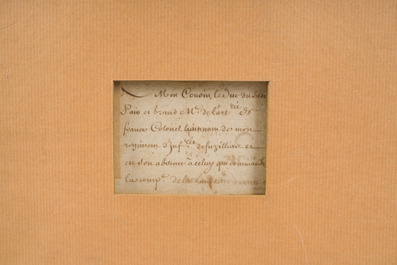 A Mon Cousin le Duc du
Pair et Grand M.e de l'art.rie de
france Colonel lieutenant de mon
regiment d'Inf.rie de fuzilliers et
en son absence a celuy qui commande
la comp.e de